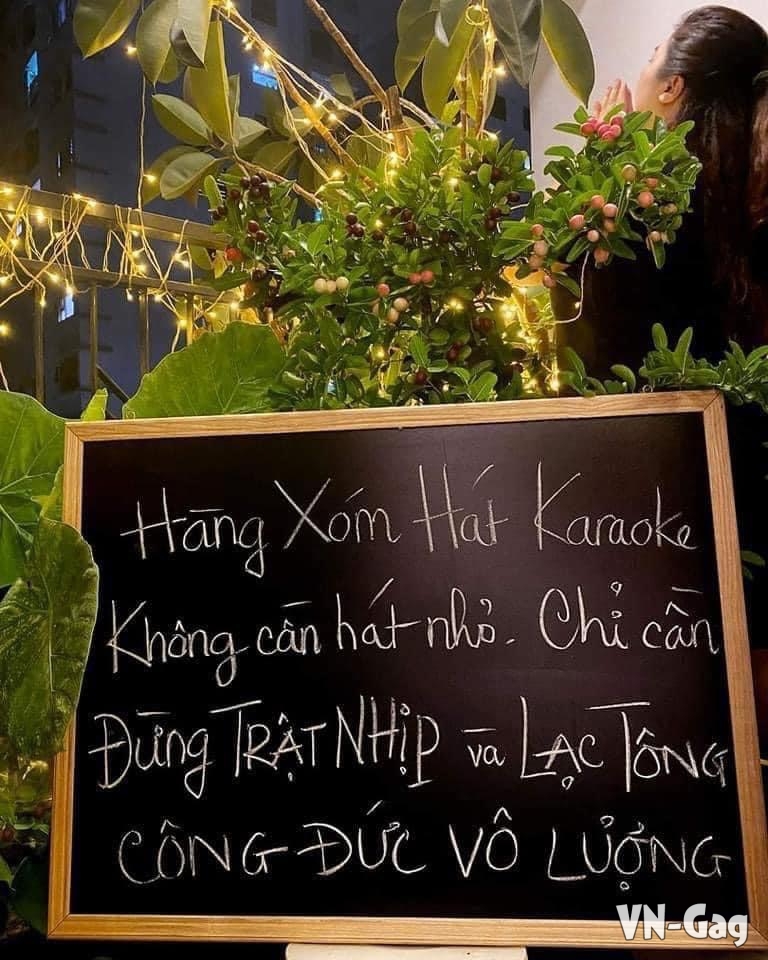 Hàng Xóm Hát Karaoke
Không cần hát nhỏ. Chỉ cần
Đừng TRẬT NHỊP và LẠC TÔNG
CÔNG ĐỨC VÔ LƯỢNG
VN-Gag